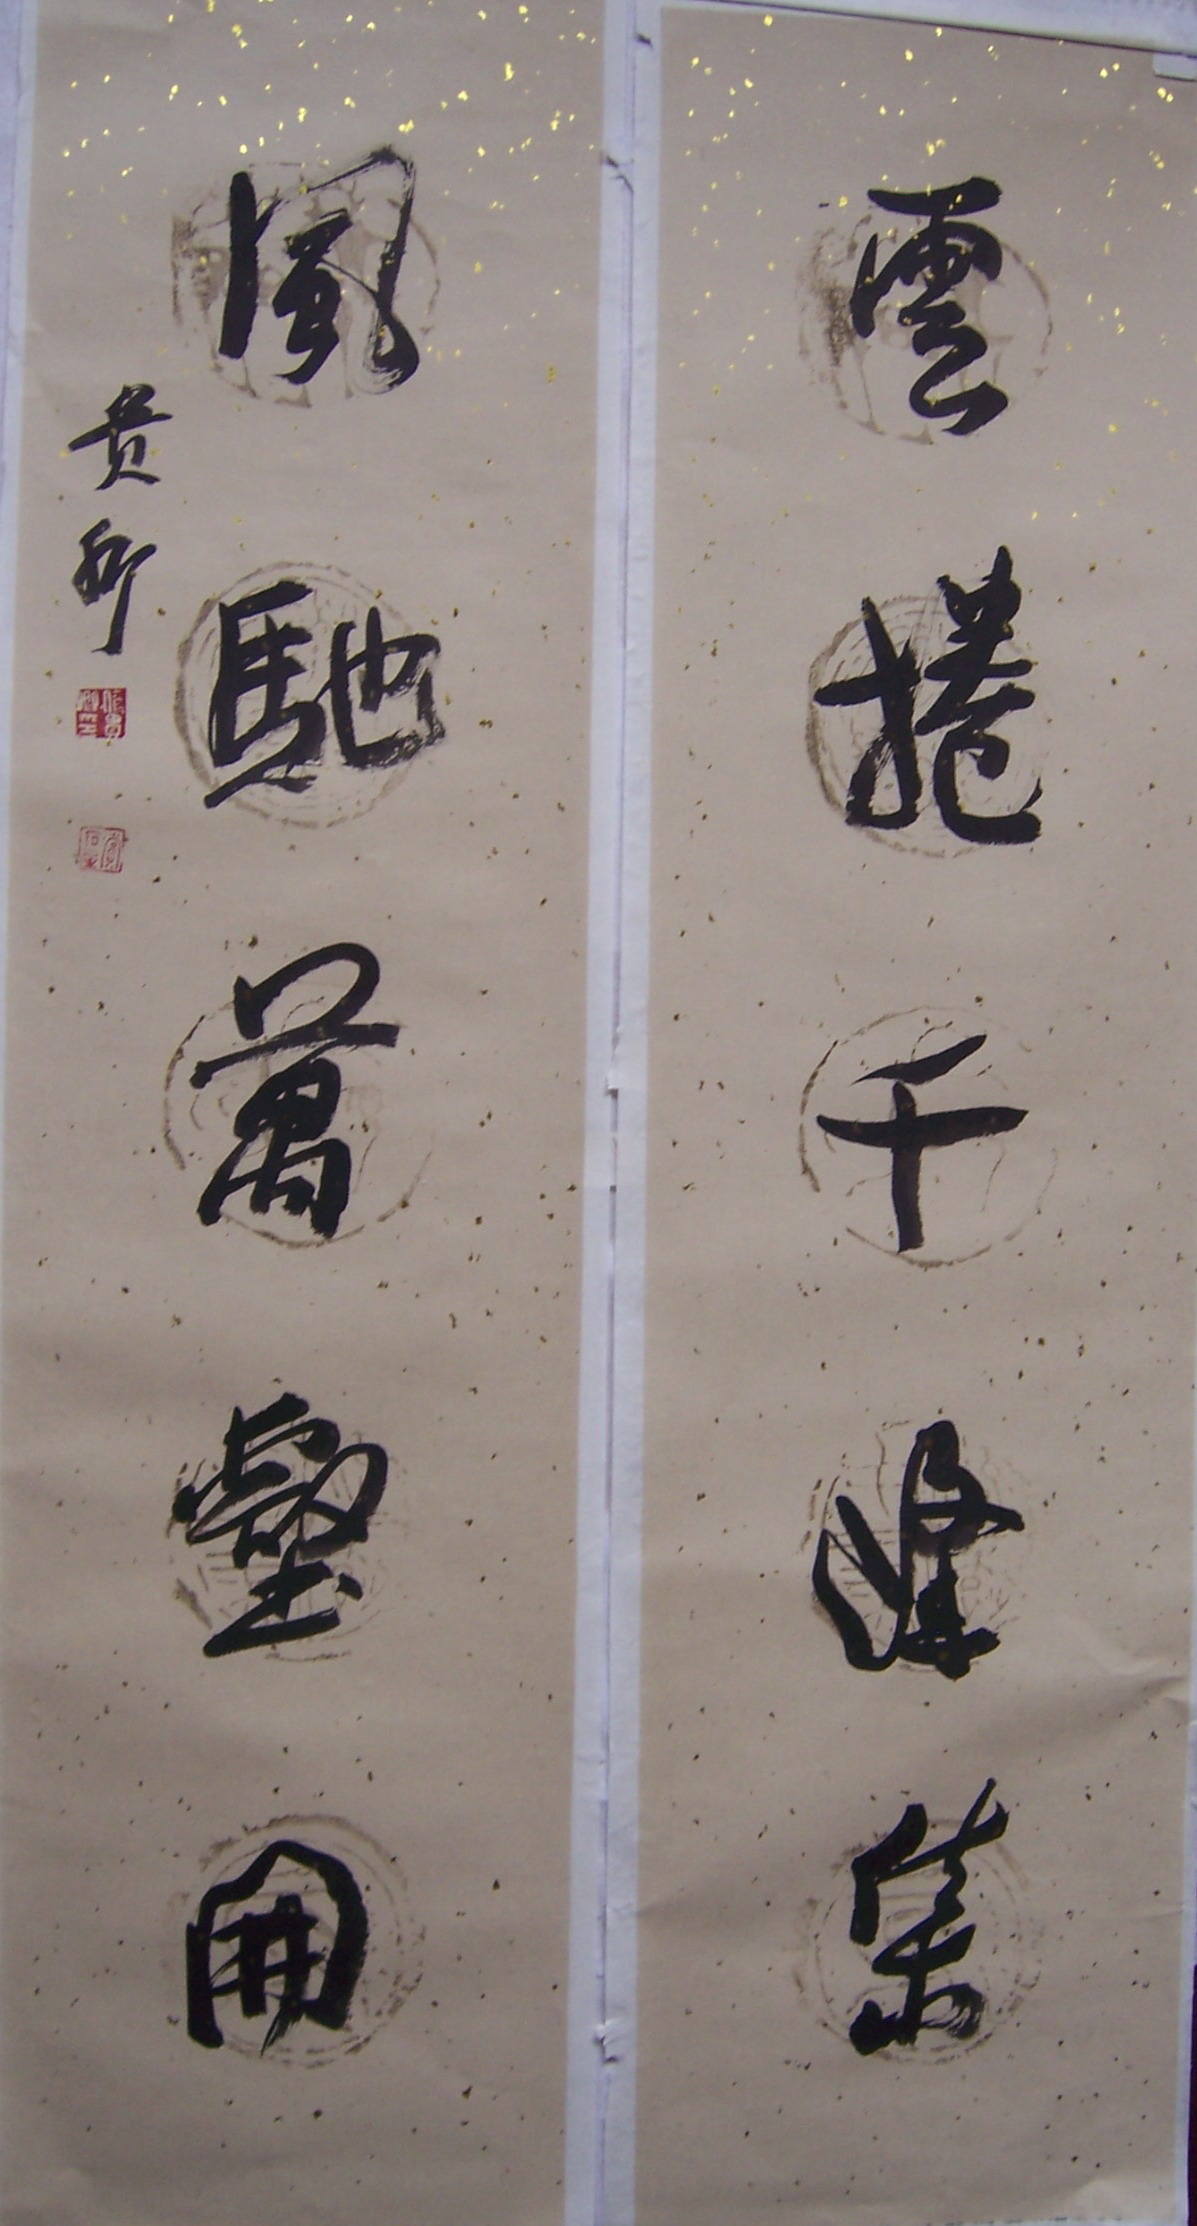 雲捲千峰集
風馳萬壑開
贵卿